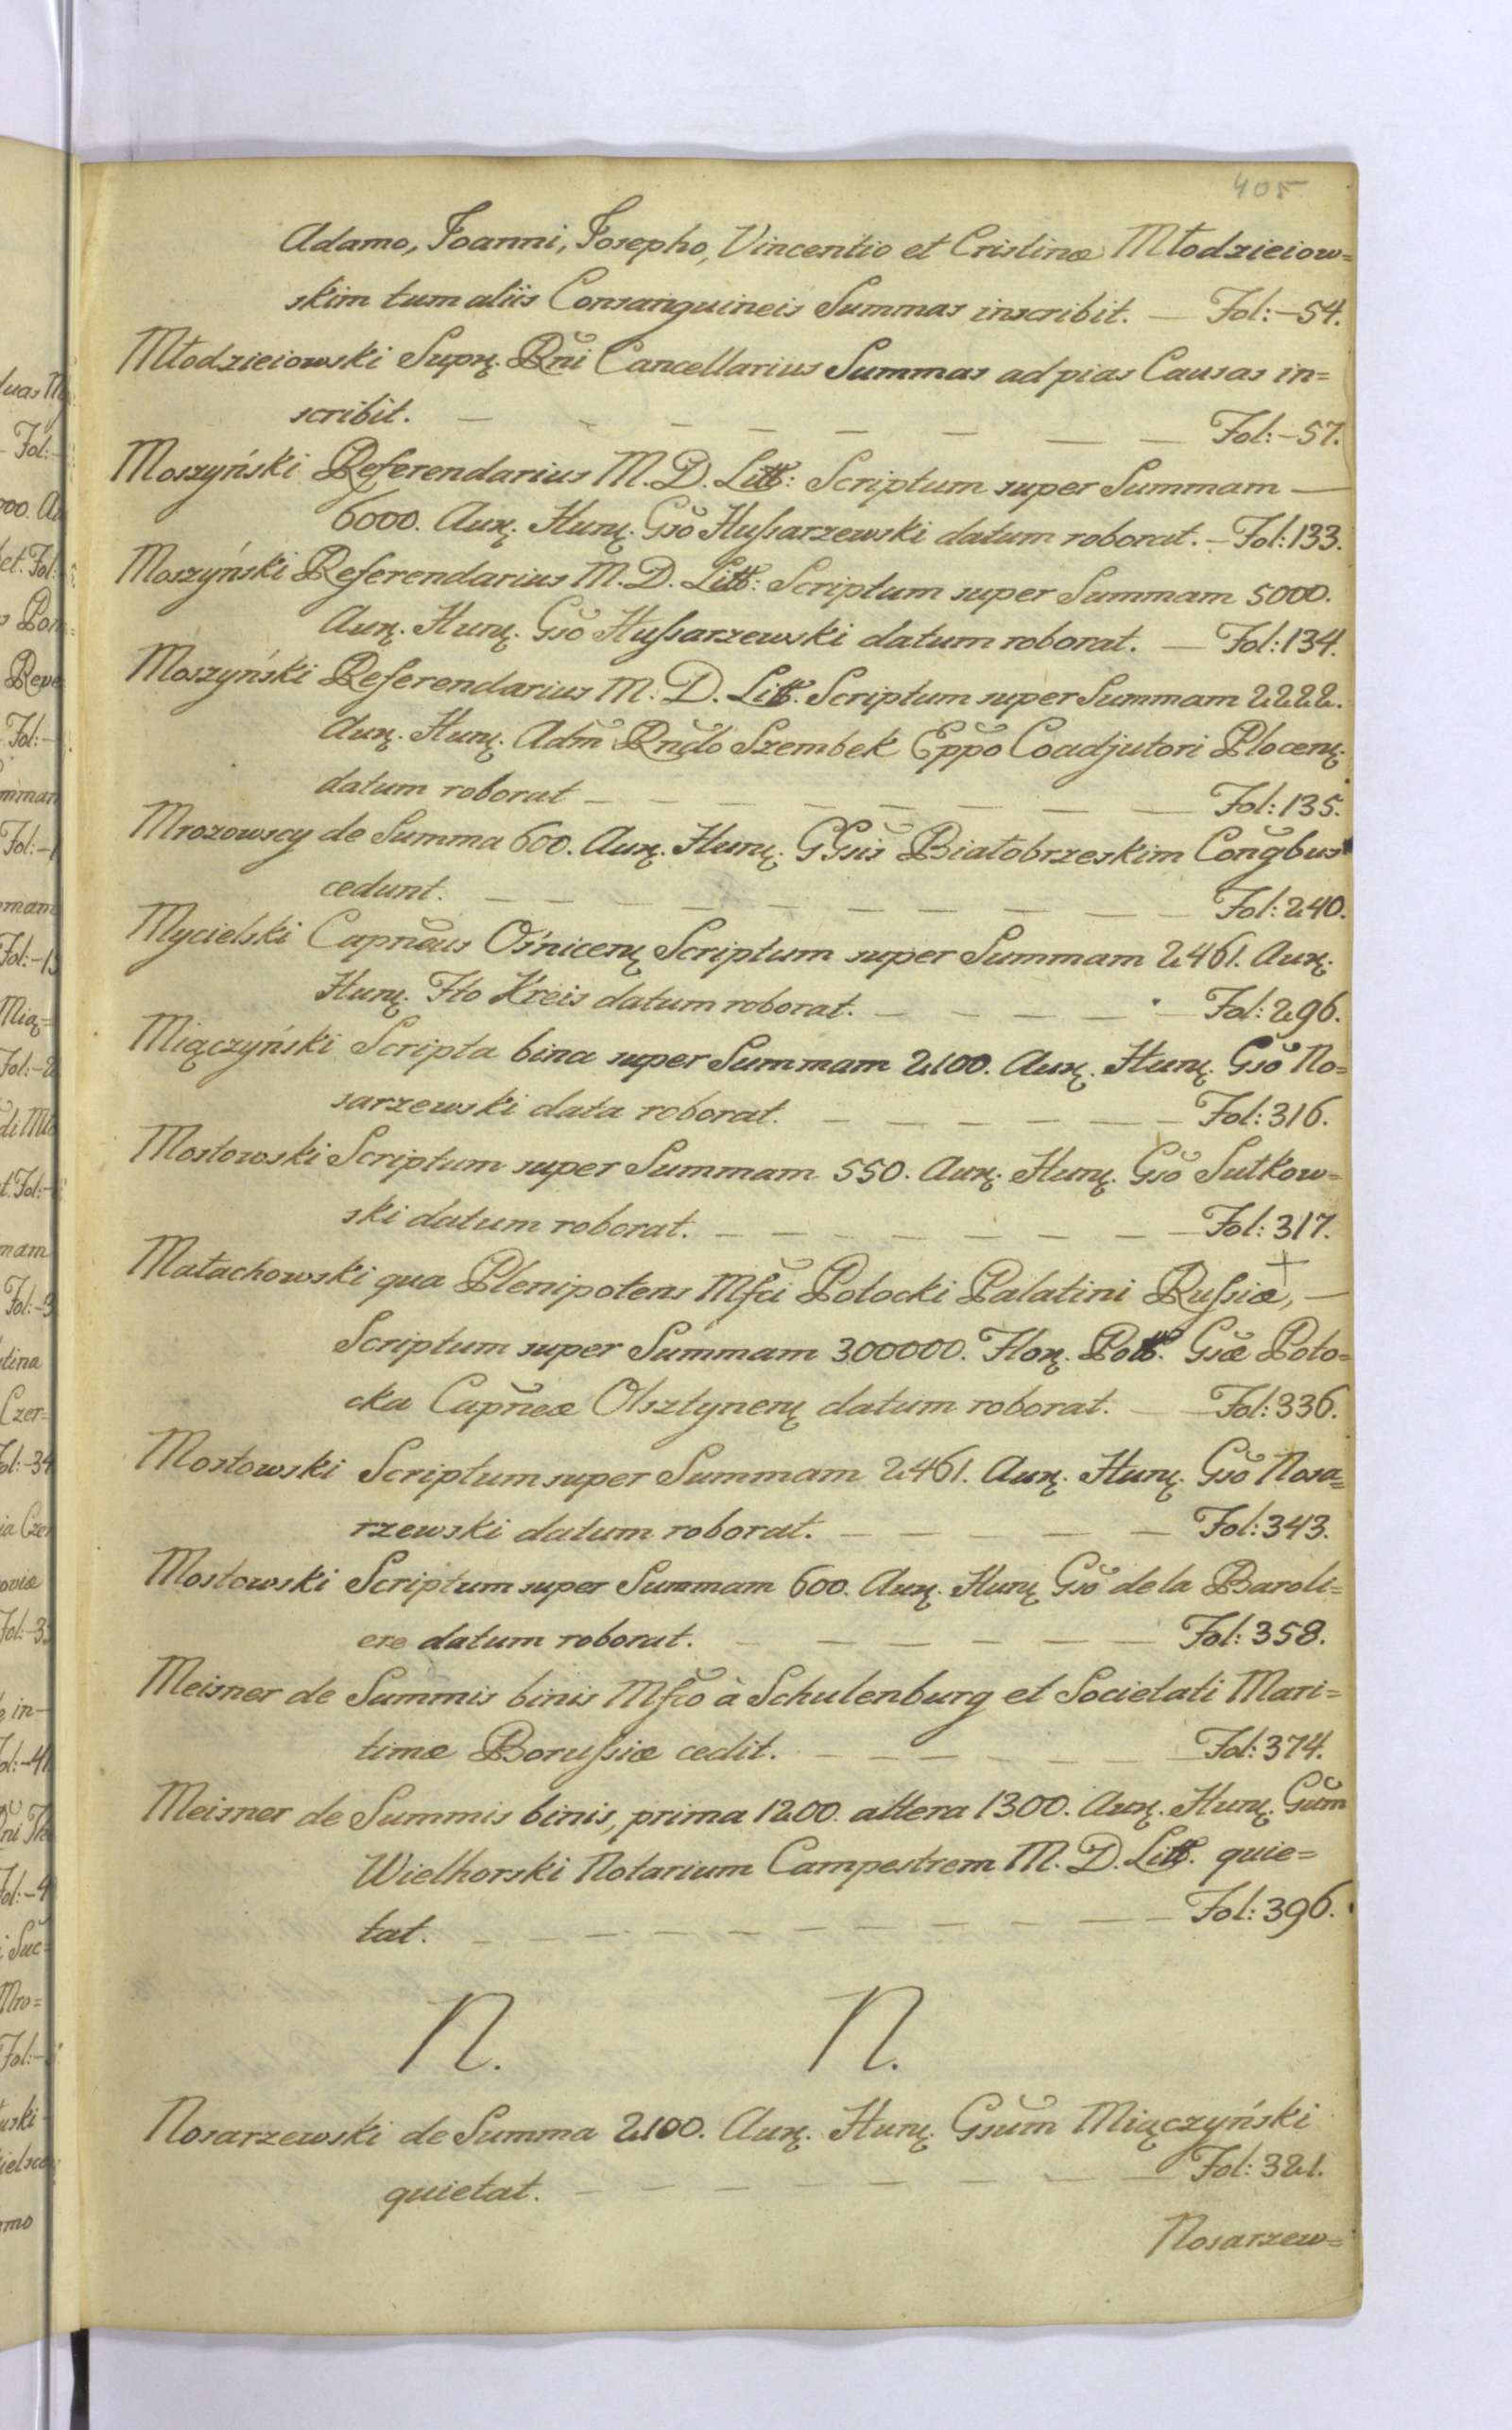 405
Adamo, Joanni, Josepho, Vincentio et Cristinæ Młodzieiow=
skim tum aliis Consanguineis Summas inscribit. — Fol:–54.
Młodzieiowski Supr. Rni Cancellarius Summas ad pias Causas in=
scribit. — — — — — — — Fol:–57.
Moszyński Referendarius M. D. Litt: Scriptum super Summam —
6000. Aur. Hung. Gso Hussarzewski datum roborat. – Fol: 133.
Moszyński Referendarius M. D. Litt: Scriptum super Summam 5000.
Aur. Hung. Gso Hussarzewski datum roborat. — Fol: 134.
Moszyński Referendarius M. D. Litt. Scriptum super Summam 2222.
Aur. Hung. Adm Rndo Szembek Eppo Coadjutori Plocen.
datum roborat — — — — — — — Fol: 135.
Mrozowscy de Summa 600. Aur. Hung. GGsis Białobrzeskim Congbus
cedunt. — — — — — — — Fol: 240.
Mycielski Capneus Ośnicen Scriptum super Summam 2461. Aur.
Hung. Ito Kreis datum roborat. — — — — Fol: 296.
Miączyński Scripta bina super Summam 2100. Aur. Hung. Gso No=
sarzewski data roborat. — — — — — Fol: 316.
Mostowski Scriptum super Summam 550. Aur. Hung. Gso Sutkow=
ski datum roborat. — — — — — — Fol: 317.
Małachowski qua Plenipotens Mfci Potocki Palatini Russiæ, —
Scriptum super Summam 300000. Flor. Poll. Gsæ Poto=
cka Capneæ Olsztynen datum roborat. — Fol: 336.
Mostowski Scriptum super Summam 2461. Aur. Hung. Gso Nosa=
rzewski datum roborat. — — — — — Fol: 343.
Mostowski Scriptum super Summam 600. Aur. Hung Gso de la Baroli=
ere datum roborat. — — — — — Fol: 358.
Meisner de Summis binis Mfco à Schulenburg et Societati Mari=
timæ Borussiæ cedit. — — — — — Fol: 374.
Meisner de Summis binis, prima 1200. altera 1300. Aur. Hung. Gsum
Wielhorski Notarium Campestrem M. D. Litt. quie=
tat. — — — — — — — Fol: 396.
N. N.
Nosarzewski de Summa 2100. Aur. Hung. Gsum Miączyński
quietat. — — — — — — Fol: 321.
Nosarzew=